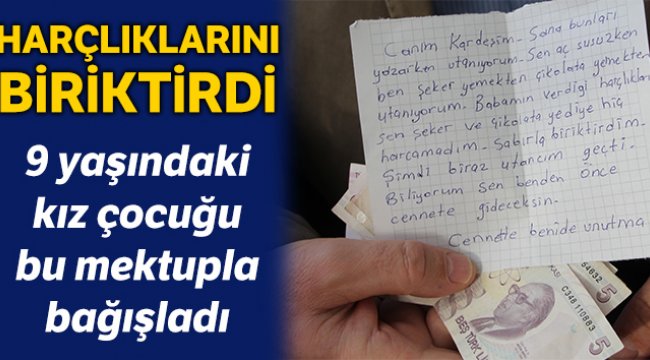 HARÇLIKLARINI
BİRİKTİRDİ
9 yaşındaki
kız çocuğu
bu mektupla
bağışladı
Canım Kardeşim- Sana bunları
yazarken utanıyorum- Sen aç susuzken
ben şeker yemekten çikolata yemekten
utanıyorum- Babamın verdiği harçlıkları
sen şeker ve çikolata yediye hiç
harcamadım- Sabırla biriktirdim-
Şimdi biraz utancım geçti-
Biliyorum sen benden Önce
cennete gideceksin-
Cennette benide unutma
C346 110883
5
BEŞ TÜRK
5